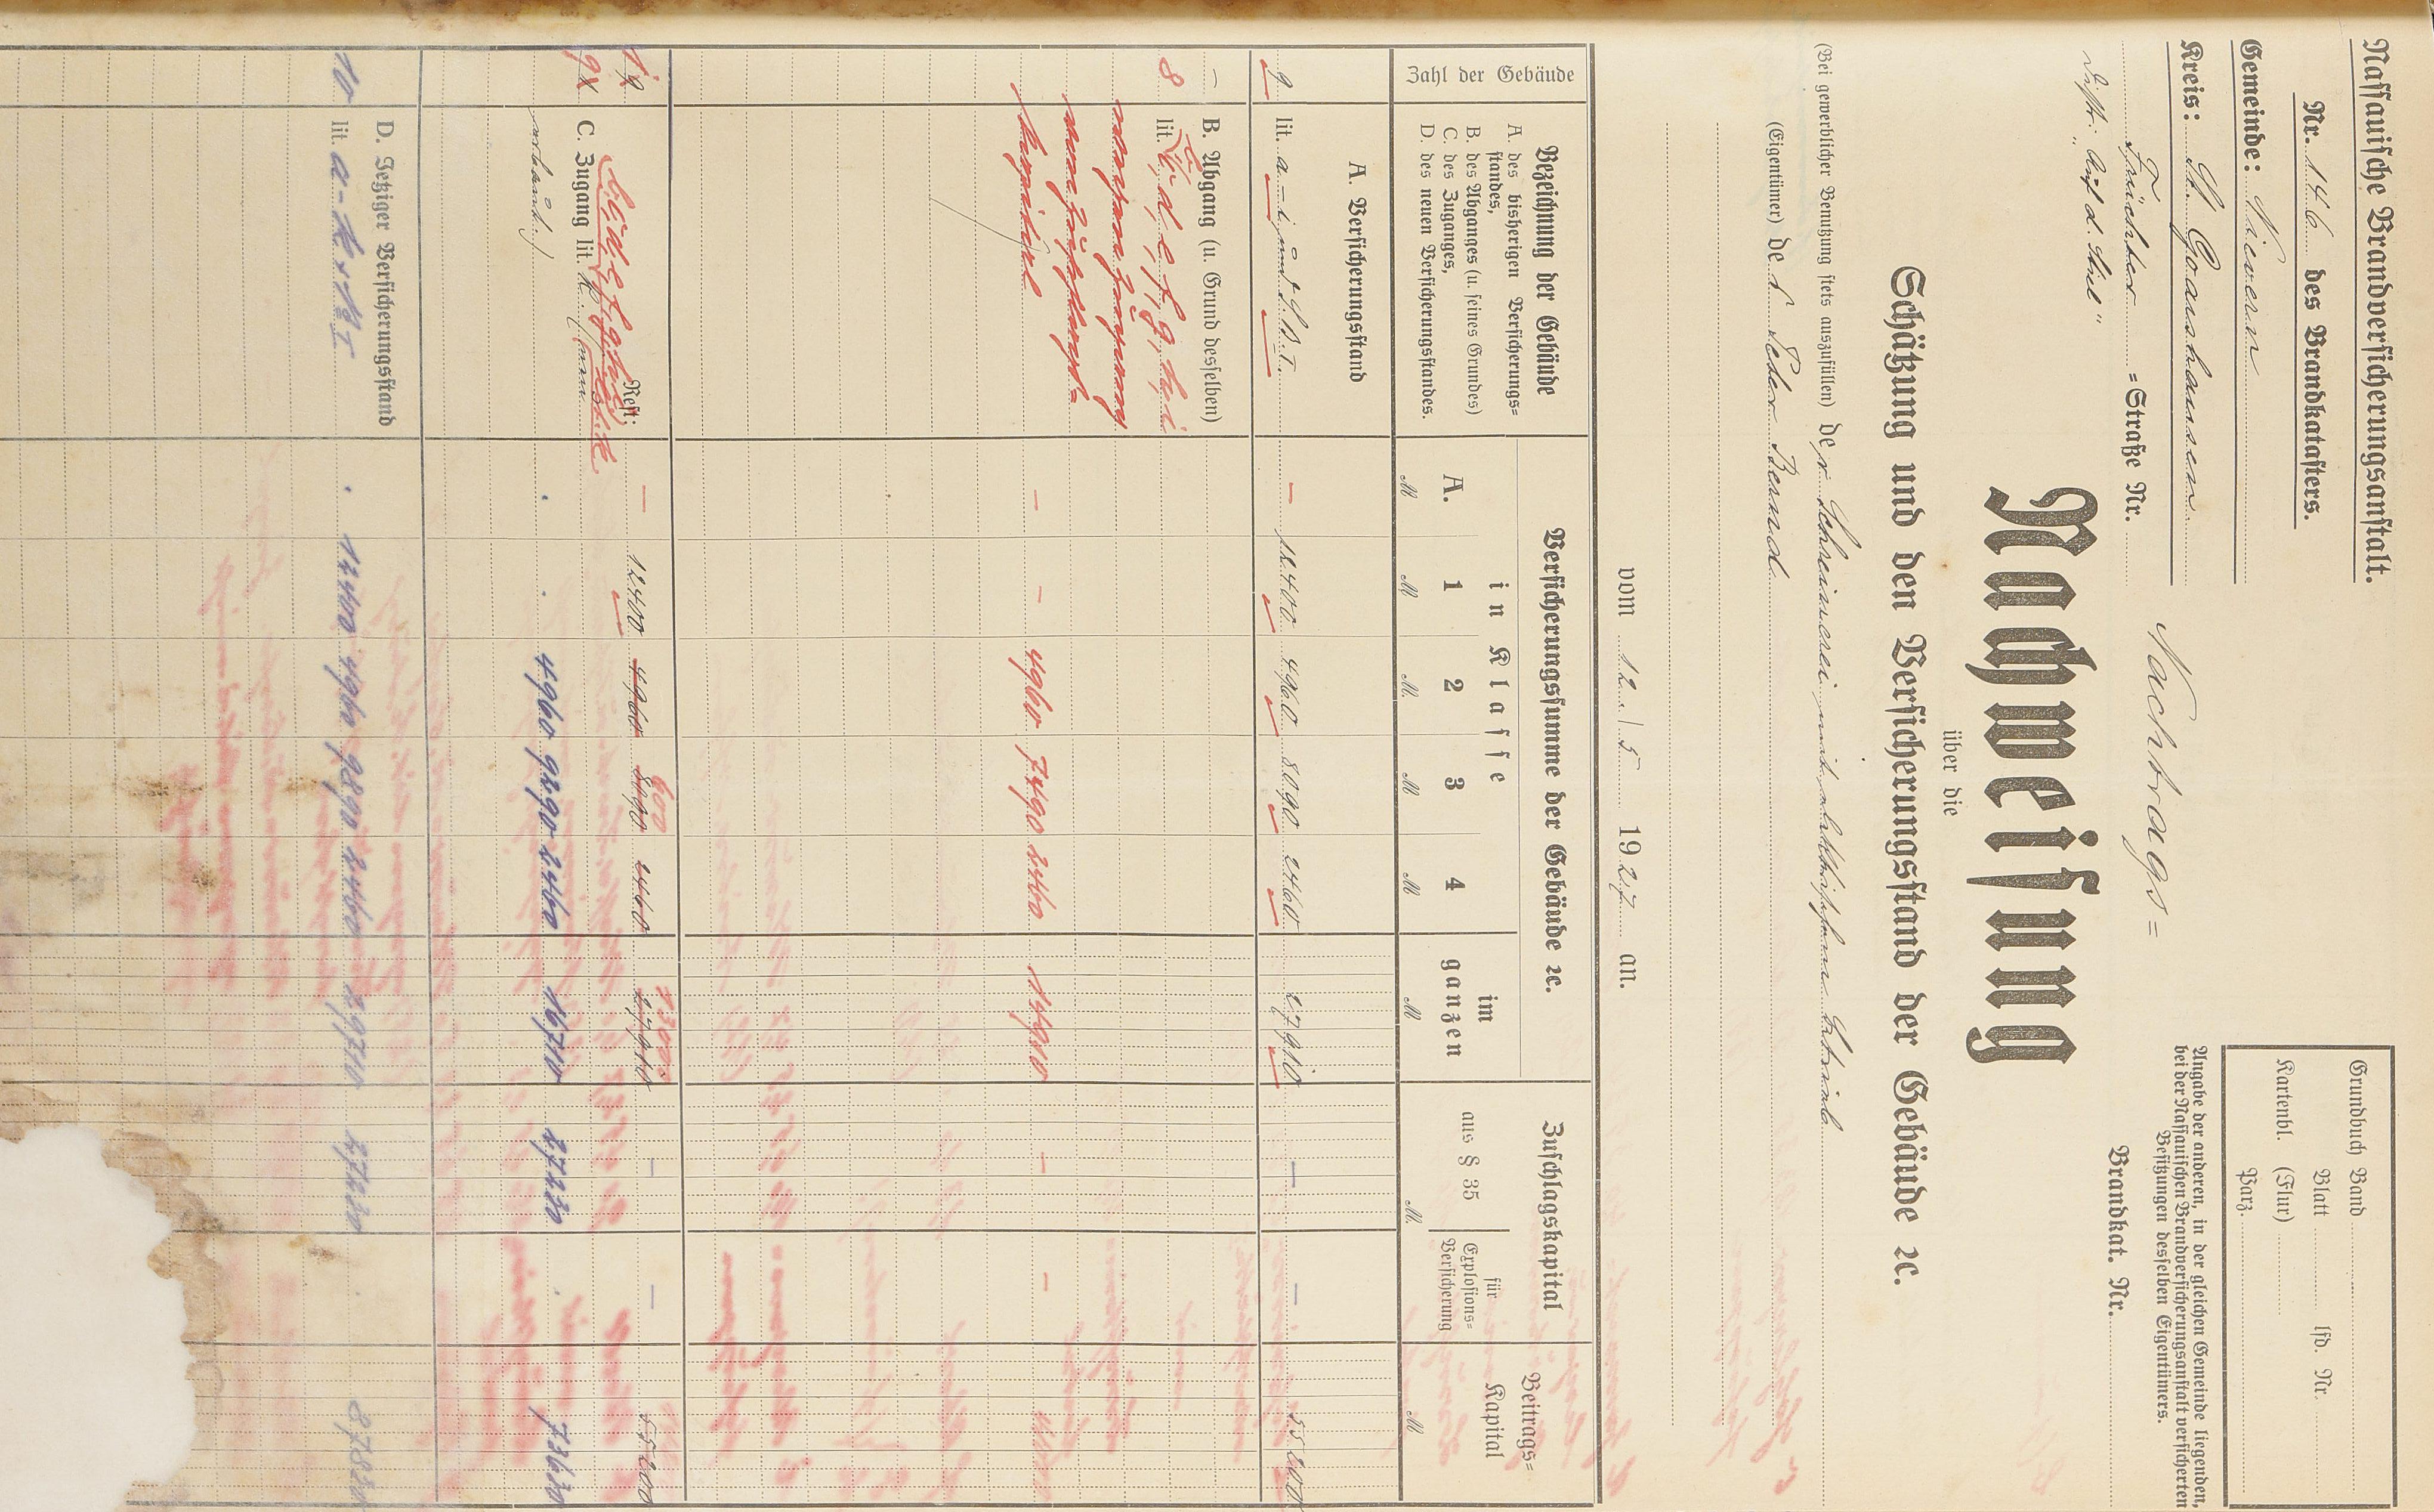 Nassauische Brandversicherungsanstalt.
Nr. 146 des Brandkatasters.
Gemeinde: Nievern
Kreis: St. Goarshausen
Früchter =Straße Nr.
Distr. „Auf d.
Nachtrags=
Grundbuch Band
Blatt lfd. Nr.
Kartenbl. (Flur)
Parz.
Angabe der anderen, in der gleichen Gemeinde liegenden,
bei der Nassauischen Brandversicherungsanstalt versicherten
Besitzungen desselben Eigentümers.
Brandkat. Nr.
Nachweisung
über die
Schätzung und den Versicherungsstand der Gebäude ꝛc.
(Bei gewerblicher Benutzung stets auszufüllen) der Schreinerei mit elektrischem Betrieb
(Eigentümer) des Peter Bernd
vom 12./5. 1927 an.
Zahl der Gebäude
Bezeichnung der Gebäude
A. des bisherigen Versicherungs=
standes,
B. des Abganges (u. seines Grundes)
C. des Zuganges,
D. des neuen Versicherungsstandes.
Versicherungssumme der Gebäude ꝛc.
in Klasse
A. 1 2 3 4
im ganzen
M M M. M M M
Zuschlagskapital
aus § 35
für Explosions=
Versicherung
M.
Beitrags=
Kapital
M
A. Versicherungsstand
9 lit. a – i und H.B.I. – 12400 4960 8090 2460 27910 – – 55200
B. Abgang (u. Grund desselben)
– 8 lit. b, c, d, e, f, g, h, i
– – 4960 7490 2460 14910 – –
600 13000
Rest: – 12400 4960 8090 2460 27910 – – 55200
9 C. Zugang lit. k.
. . 4960 9290 2460 16710 27220 . 73630
D. Jetziger Versicherungsstand
10 lit. a - k + H.B.I . 12400 4960 9890 2460 29710 27220 . 87830